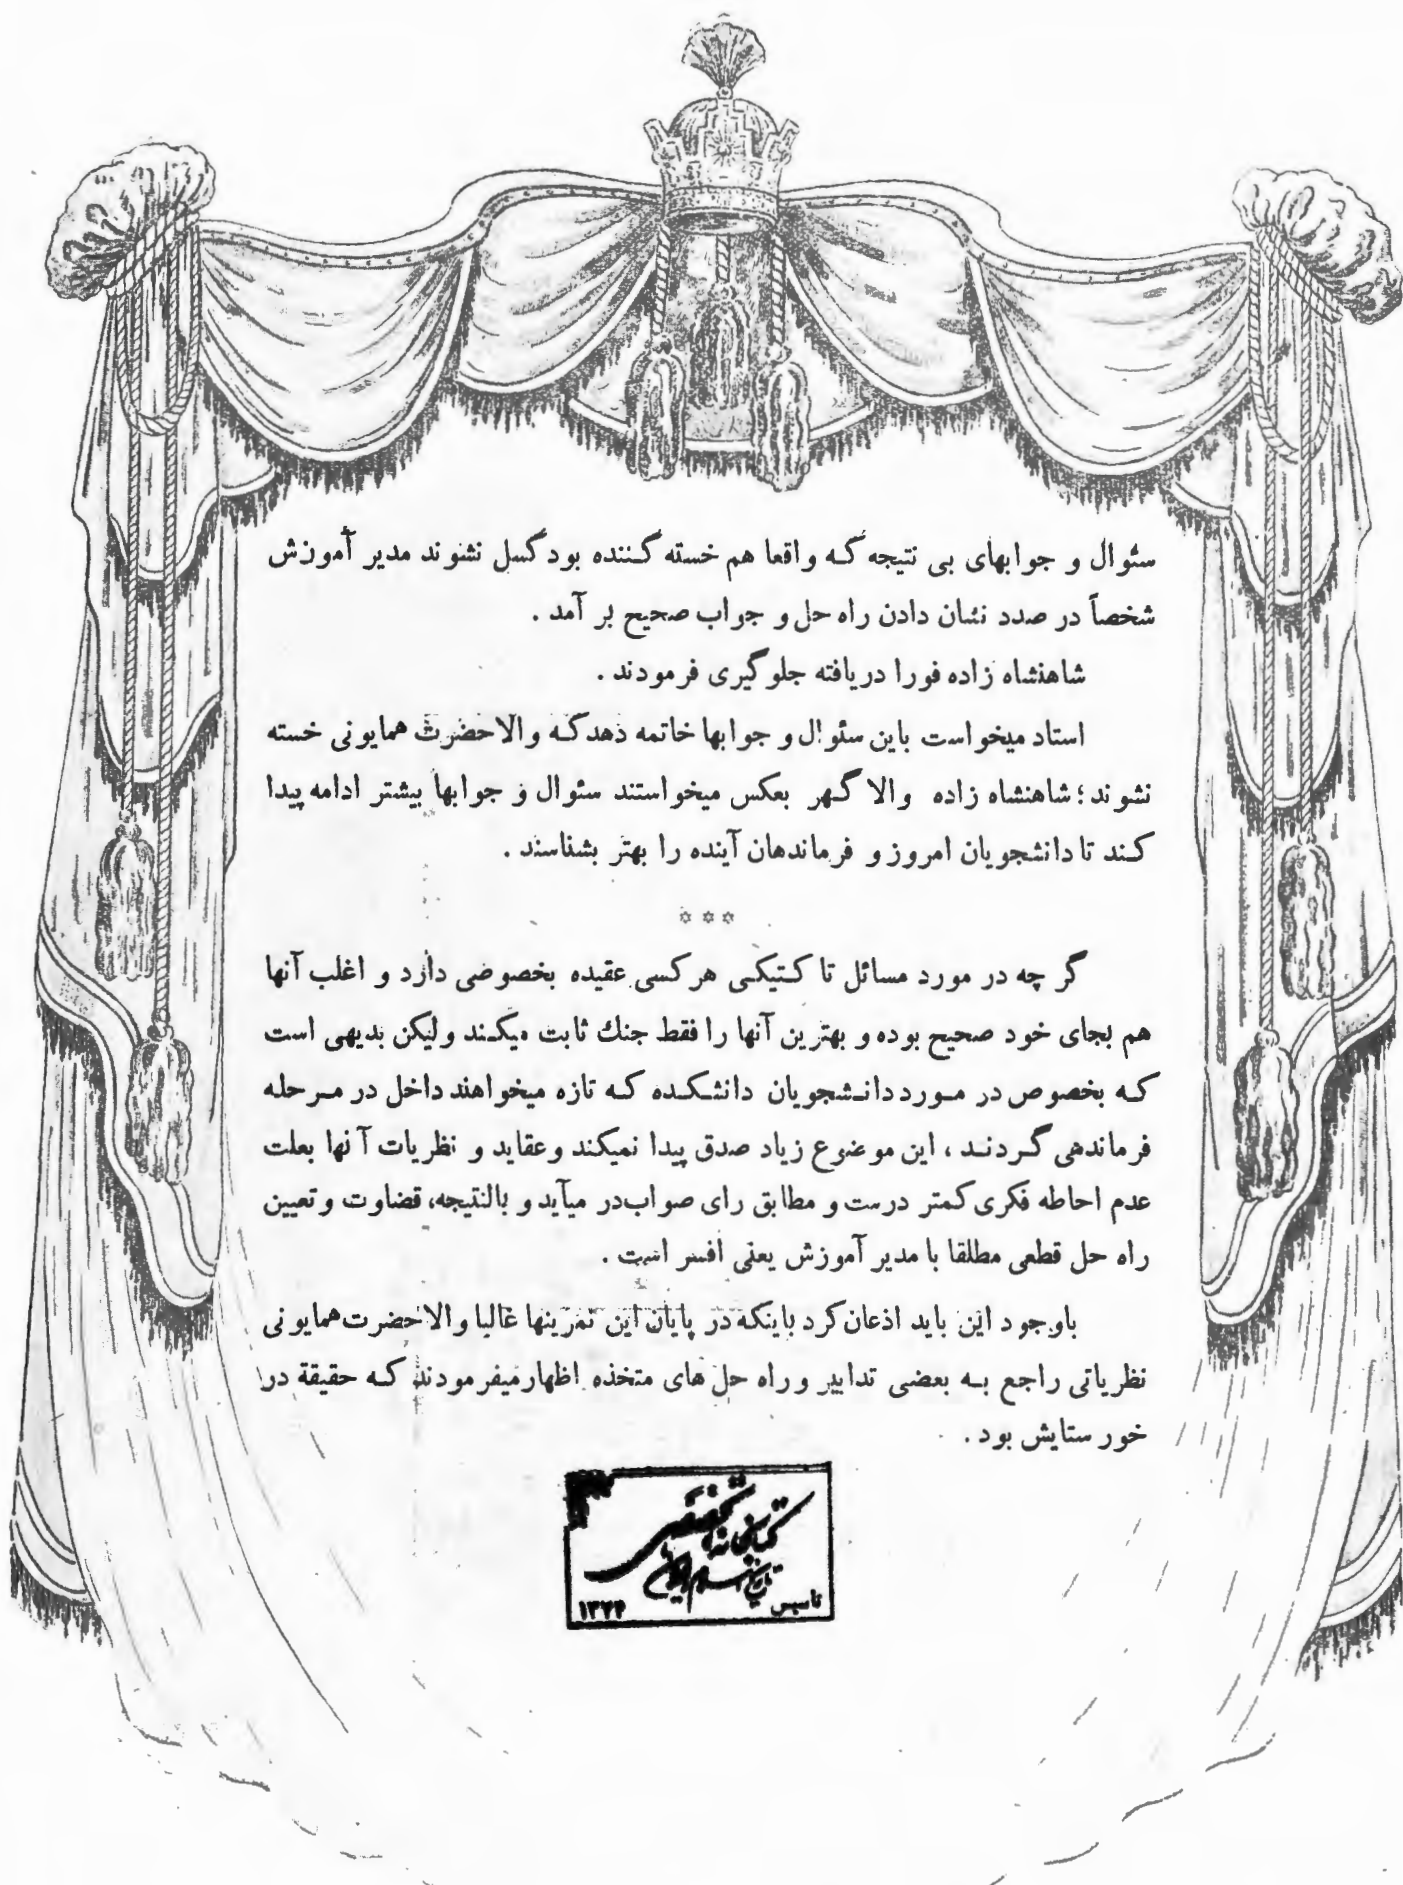 سئوال و جوابهای بی نتیجه که واقعا هم خسته کننده بود کسل نشوند مدیر آموزش
شخصاً در صدد نشان دادن راه حل و جواب صحیح بر آمد .
شاهنشاه زاده فورا دریافته جلوگیری فرمودند .
استاد میخواست باین سئوال و جوابها خاتمه دهد که والاحضرت همایونی خسته
نشوند ؛ شاهنشاه زاده والا گهر بعکس میخواستند سئوال و جوابها بیشتر ادامه پیدا
کند تا دانشجویان امروز و فرماندهان آینده را بهتر بشناسند .
* * *
گر چه در مورد مسائل تاکتیکی هر کسی عقیده بخصوصی دارد و اغلب آنها
هم بجای خود صحیح بوده و بهترین آنها را فقط جنك ثابت میکند ولیکن بدیهی است
که بخصوص در مورد دانشجویان دانشکده که تازه میخواهند داخل در مرحله
فرماندهی گردند ، این موضوع زیاد صدق پیدا نمیکند و عقاید و نظریات آنها بعلت
عدم احاطه فکری کمتر درست و مطابق رای صواب در میآید و بالنتیجه، قضاوت و تعیین
راه حل قطعی مطلقا با مدیر آموزش یعنی افسر است .
باوجود این باید اذعان کرد باینکه در پایان این تمرینها غالبا والاحضرت همایونی
نظریاتی راجع به بعضی تدابیر و راه حل های متخذه اظهار میفرمودند که حقیقة در
خور ستایش بود .
کتابخانه تخصصی
تاریخ اسلام و ایران
تاسیس ۱۳۷۴